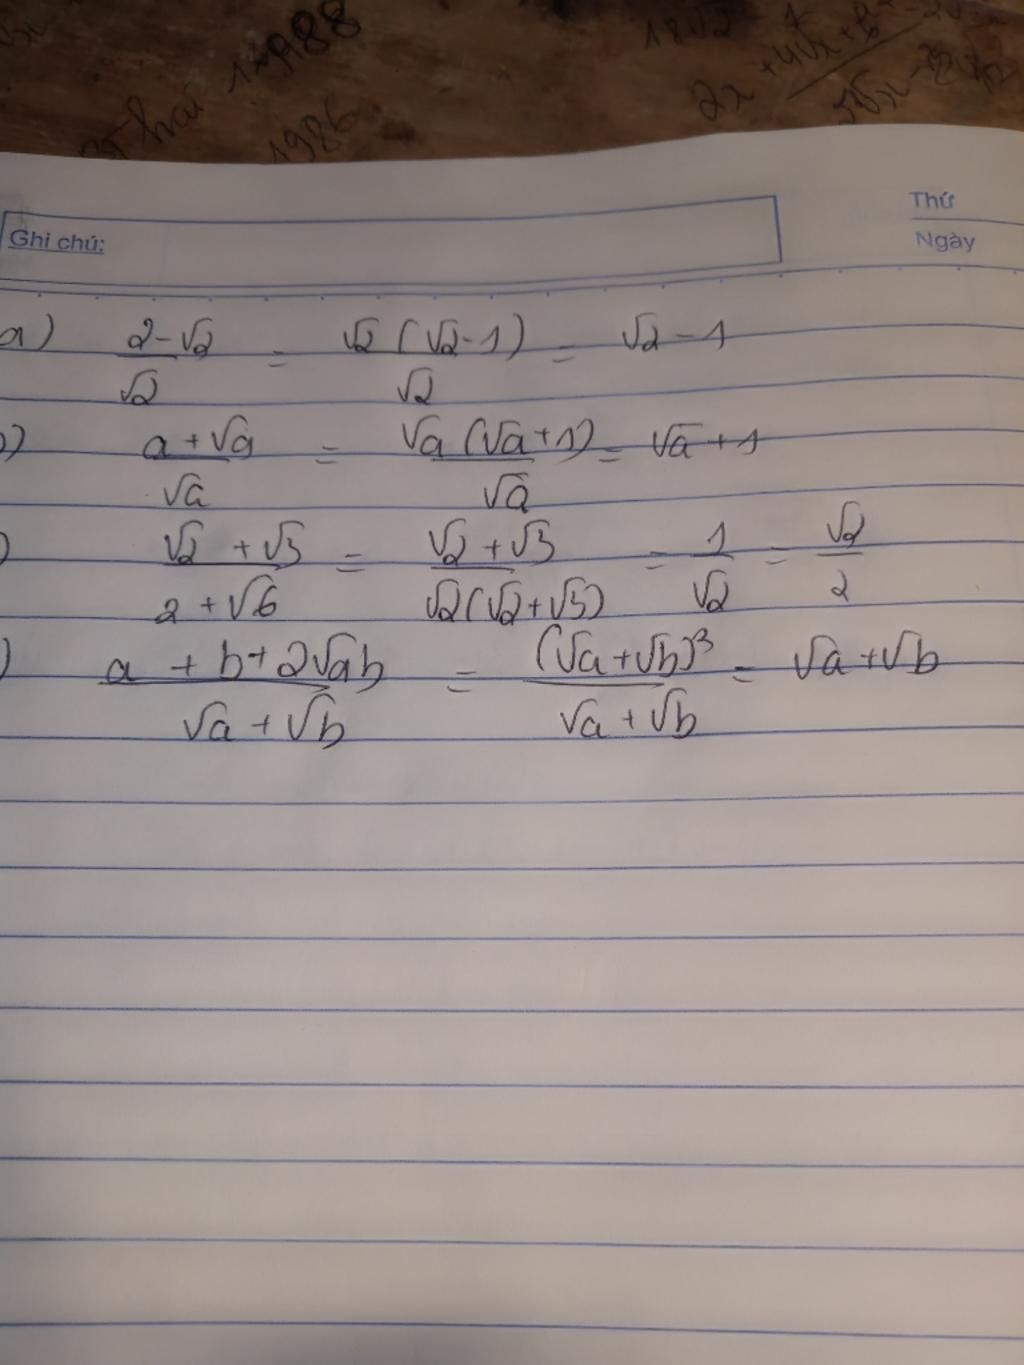 1988
hai
1986
2x + 4√x + 8
Thứ
Ghi chú:
Ngày
a) (2-√2)/√2 = √2(√2-1)/√2 = √2 - 1
) (a+√a)/√a = √a(√a+1)/√a = √a + 1
) (√2+√3)/(2+√6) = (√2+√3)/(√2(√2+√3)) = 1/√2 = √2/2
) (a+b+2√ab)/(√a+√b) = (√a+√b)²/(√a+√b) = √a+√b